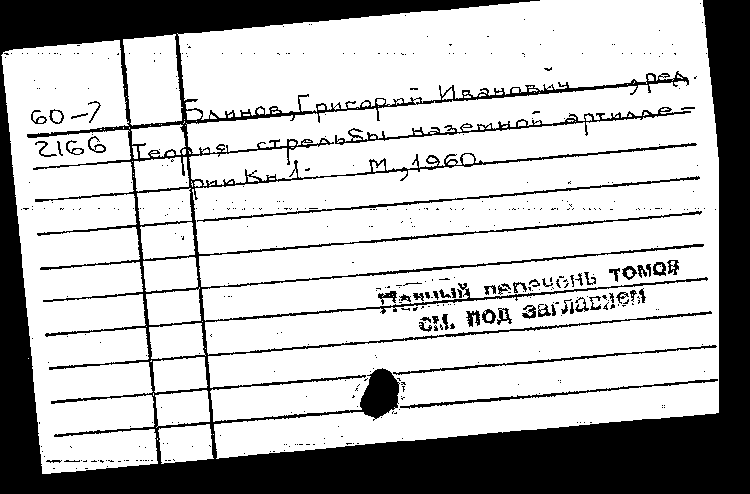 60-7 Блинов, Григорий Иванович, ред.
2166 Теория стрельбы наземной артилле=
рии Кн. 1. М., 1960.
Полный перечень томов
см. под заглавием